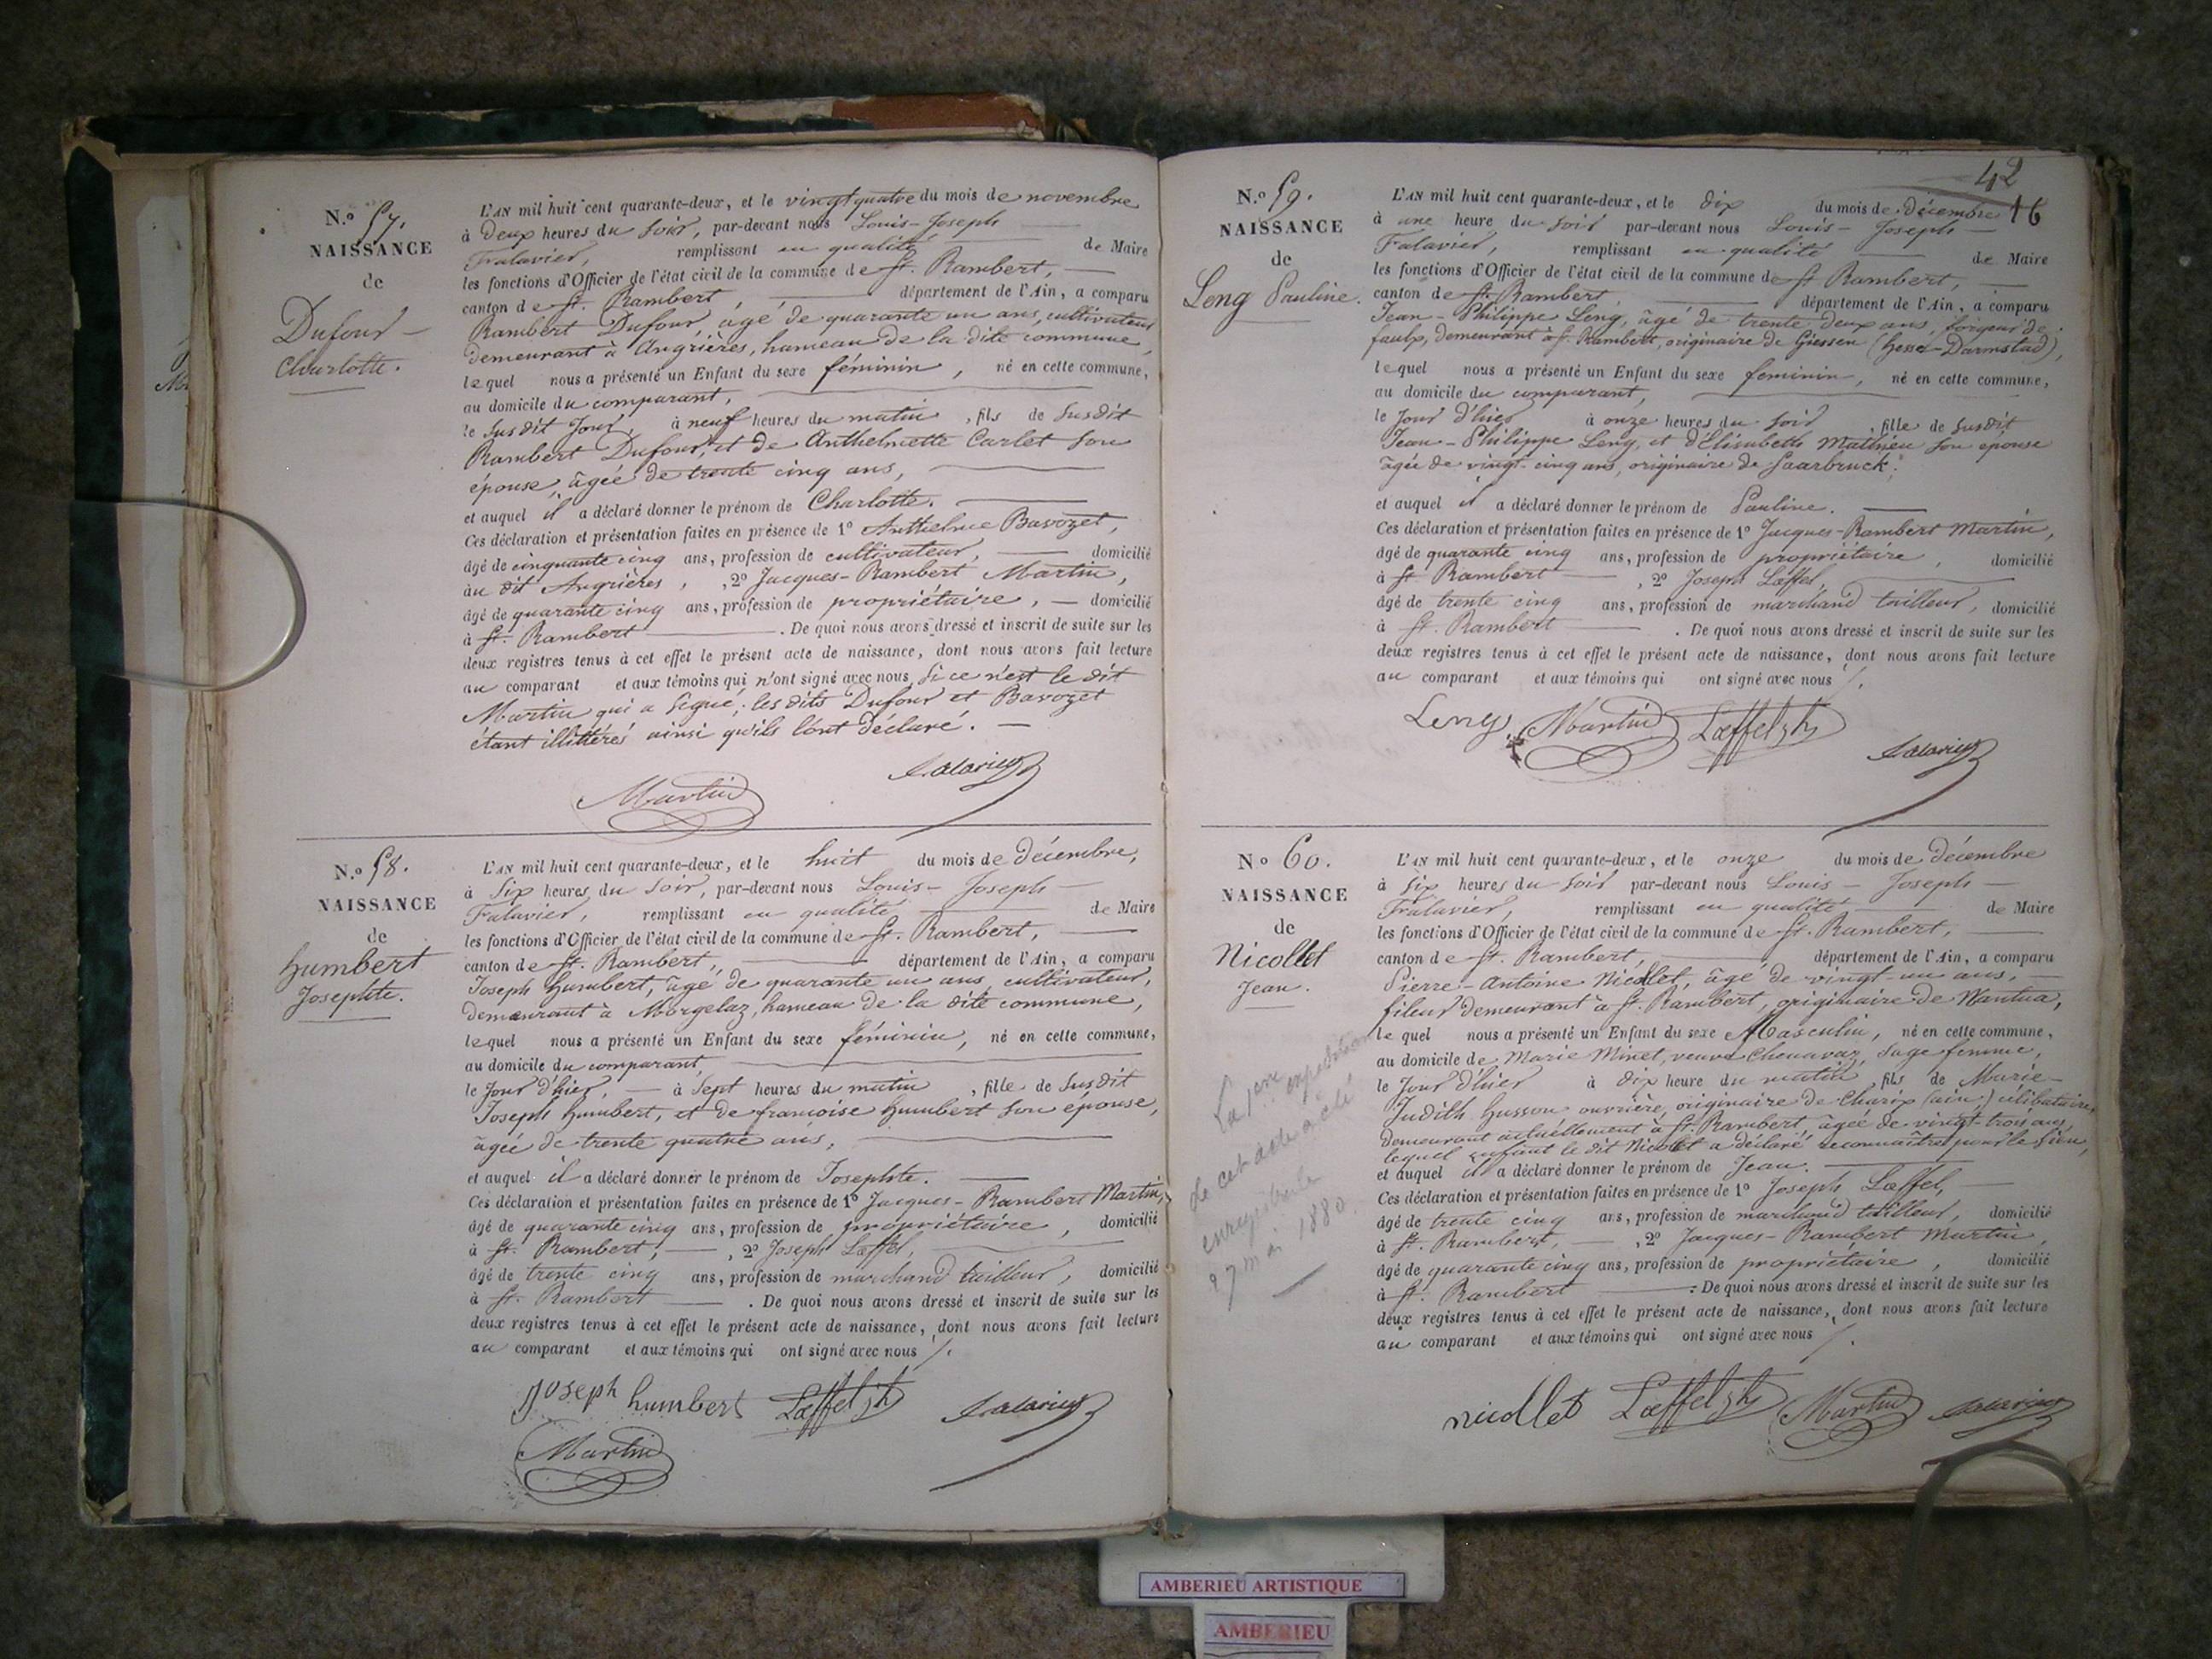 N.o 57.
NAISSANCE
de
Dufour
Charlotte.
L'AN mil huit cent quarante-deux, et le vingt quatre du mois de novembre
à deux heures du soir, par-devant nous Louis-Joseph
Falavier, remplissant en qualité de Maire
les fonctions d'Officier de l'état civil de la commune de St. Rambert,
canton de St. Rambert, département de l'Ain, a comparu
Rambert Dufour, âgé de quarante un ans, cultivateur
demeurant à Angrières, hameau de la dite commune,
lequel nous a présenté un Enfant du sexe féminin, né en cette commune,
au domicile du comparant,
le susdit jour, à neuf heures du matin, fils de susdit
Rambert Dufour, et de Anthelmette Carlet son
épouse, âgée de trente cinq ans,
et auquel il a déclaré donner le prénom de Charlotte.
Ces déclaration et présentation faites en présence de 1o Anthelme Bavozet,
âgé de cinquante cinq ans, profession de cultivateur, domicilié
au dit Angrières, 2o Jacques-Rambert Martin,
âgé de quarante cinq ans, profession de propriétaire, domicilié
à St. Rambert. De quoi nous avons dressé et inscrit de suite sur les
deux registres tenus à cet effet le présent acte de naissance, dont nous avons fait lecture
au comparant et aux témoins qui n'ont signé avec nous si ce n'est le dit
Martin qui a signé; les dits Dufour et Bavozet
étant illittérés ainsi qu'ils l'ont déclaré.
Falavier
Martin
N.o 58.
NAISSANCE
de
humbert
Josephte.
L'AN mil huit cent quarante-deux, et le huit du mois de décembre,
à six heures du soir, par-devant nous Louis-Joseph
Falavier, remplissant en qualité de Maire
les fonctions d'Officier de l'état civil de la commune de St. Rambert,
canton de St. Rambert, département de l'Ain, a comparu
Joseph humbert, âgé de quarante un ans, cultivateur,
demeurant à Morgelaz, hameau de la dite commune,
lequel nous a présenté un Enfant du sexe féminin, né en cette commune,
au domicile du comparant
le jour d'hier, à sept heures du matin, fille de susdit
Joseph humbert, et de françoise humbert son épouse,
âgée de trente quatre ans,
et auquel il a déclaré donner le prénom de Josephte.
Ces déclaration et présentation faites en présence de 1o Jacques-Rambert Martin,
âgé de quarante cinq ans, profession de propriétaire, domicilié
à St. Rambert, 2o Joseph Læffel,
âgé de trente cinq ans, profession de marchand tailleur, domicilié
à St. Rambert. De quoi nous avons dressé et inscrit de suite sur les
deux registres tenus à cet effet le présent acte de naissance, dont nous avons fait lecture
au comparant et aux témoins qui ont signé avec nous /.
Joseph humbert Læffel Falavier
Martin
42
16
N.o 59.
NAISSANCE
de
Leng Pauline.
L'AN mil huit cent quarante-deux, et le dix du mois de décembre
à une heure du soir par-devant nous Louis-Joseph
Falavier, remplissant en qualité de Maire
les fonctions d'Officier de l'état civil de la commune de St Rambert,
canton de St. Rambert, département de l'Ain, a comparu
Jean-Philippe Leng, âgé de trente deux ans, forgeur de
faulx, demeurant à St. Rambert, originaire de Giessen (hesse-Darmstad),
lequel nous a présenté un Enfant du sexe feminin, né en cette commune,
au domicile du comparant,
le jour d'hier à onze heures du soir, fille de susdit
Jean-Philippe Leng, et d'Elisabeth Mathieu son épouse
âgée de vingt-cinq ans, originaire de Saarbruck.
et auquel il a déclaré donner le prénom de Pauline.
Ces déclaration et présentation faites en présence de 1o Jacques-Rambert Martin,
âgé de quarante cinq ans, profession de propriétaire, domicilié
à St Rambert, 2o Joseph Læffel,
âgé de trente cinq ans, profession de marchand tailleur, domicilié
à St. Rambert. De quoi nous avons dressé et inscrit de suite sur les
deux registres tenus à cet effet le présent acte de naissance, dont nous avons fait lecture
au comparant et aux témoins qui ont signé avec nous /.
Leng Martin Læffel
Falavier
No 60.
NAISSANCE
de
Nicollet
Jean.
La 1ere expédition
de cet acte a été
enregistrée le
27 mai 1880.
L'AN mil huit cent quarante-deux, et le onze du mois de décembre
à six heures du soir par-devant nous Louis-Joseph
Falavier, remplissant en qualité de Maire
les fonctions d'Officier de l'état civil de la commune de St. Rambert,
canton de St. Rambert, département de l'Ain, a comparu
Pierre-Antoine Nicollet, âgé de vingt-un ans,
fileur demeurant à St. Rambert, originaire de Nantua,
lequel nous a présenté un Enfant du sexe Masculin, né en cette commune,
au domicile de Marie Minet, veuve Chenavaz, sage femme,
le jour d'hier à dix heure du matin, fils de Marie-
Judith husson ouvrière, originaire de Charix (ain) célibataire,
demeurant actuellement à St. Rambert, âgée de vingt-trois ans,
lequel enfant le dit Nicollet a déclaré reconnaître pour le sien,
et auquel il a déclaré donner le prénom de Jean.
Ces déclaration et présentation faites en présence de 1o Joseph Læffel,
âgé de trente cinq ans, profession de marchand tailleur, domicilié
à St. Rambert, 2o Jacques-Rambert Martin,
âgé de quarante cinq ans, profession de propriétaire, domicilié
à St. Rambert. De quoi nous avons dressé et inscrit de suite sur les
deux registres tenus à cet effet le présent acte de naissance, dont nous avons fait lecture
au comparant et aux témoins qui ont signé avec nous /.
nicollet Læffel Martin Falavier
AMBERIEU ARTISTIQUE
AMBERIEU